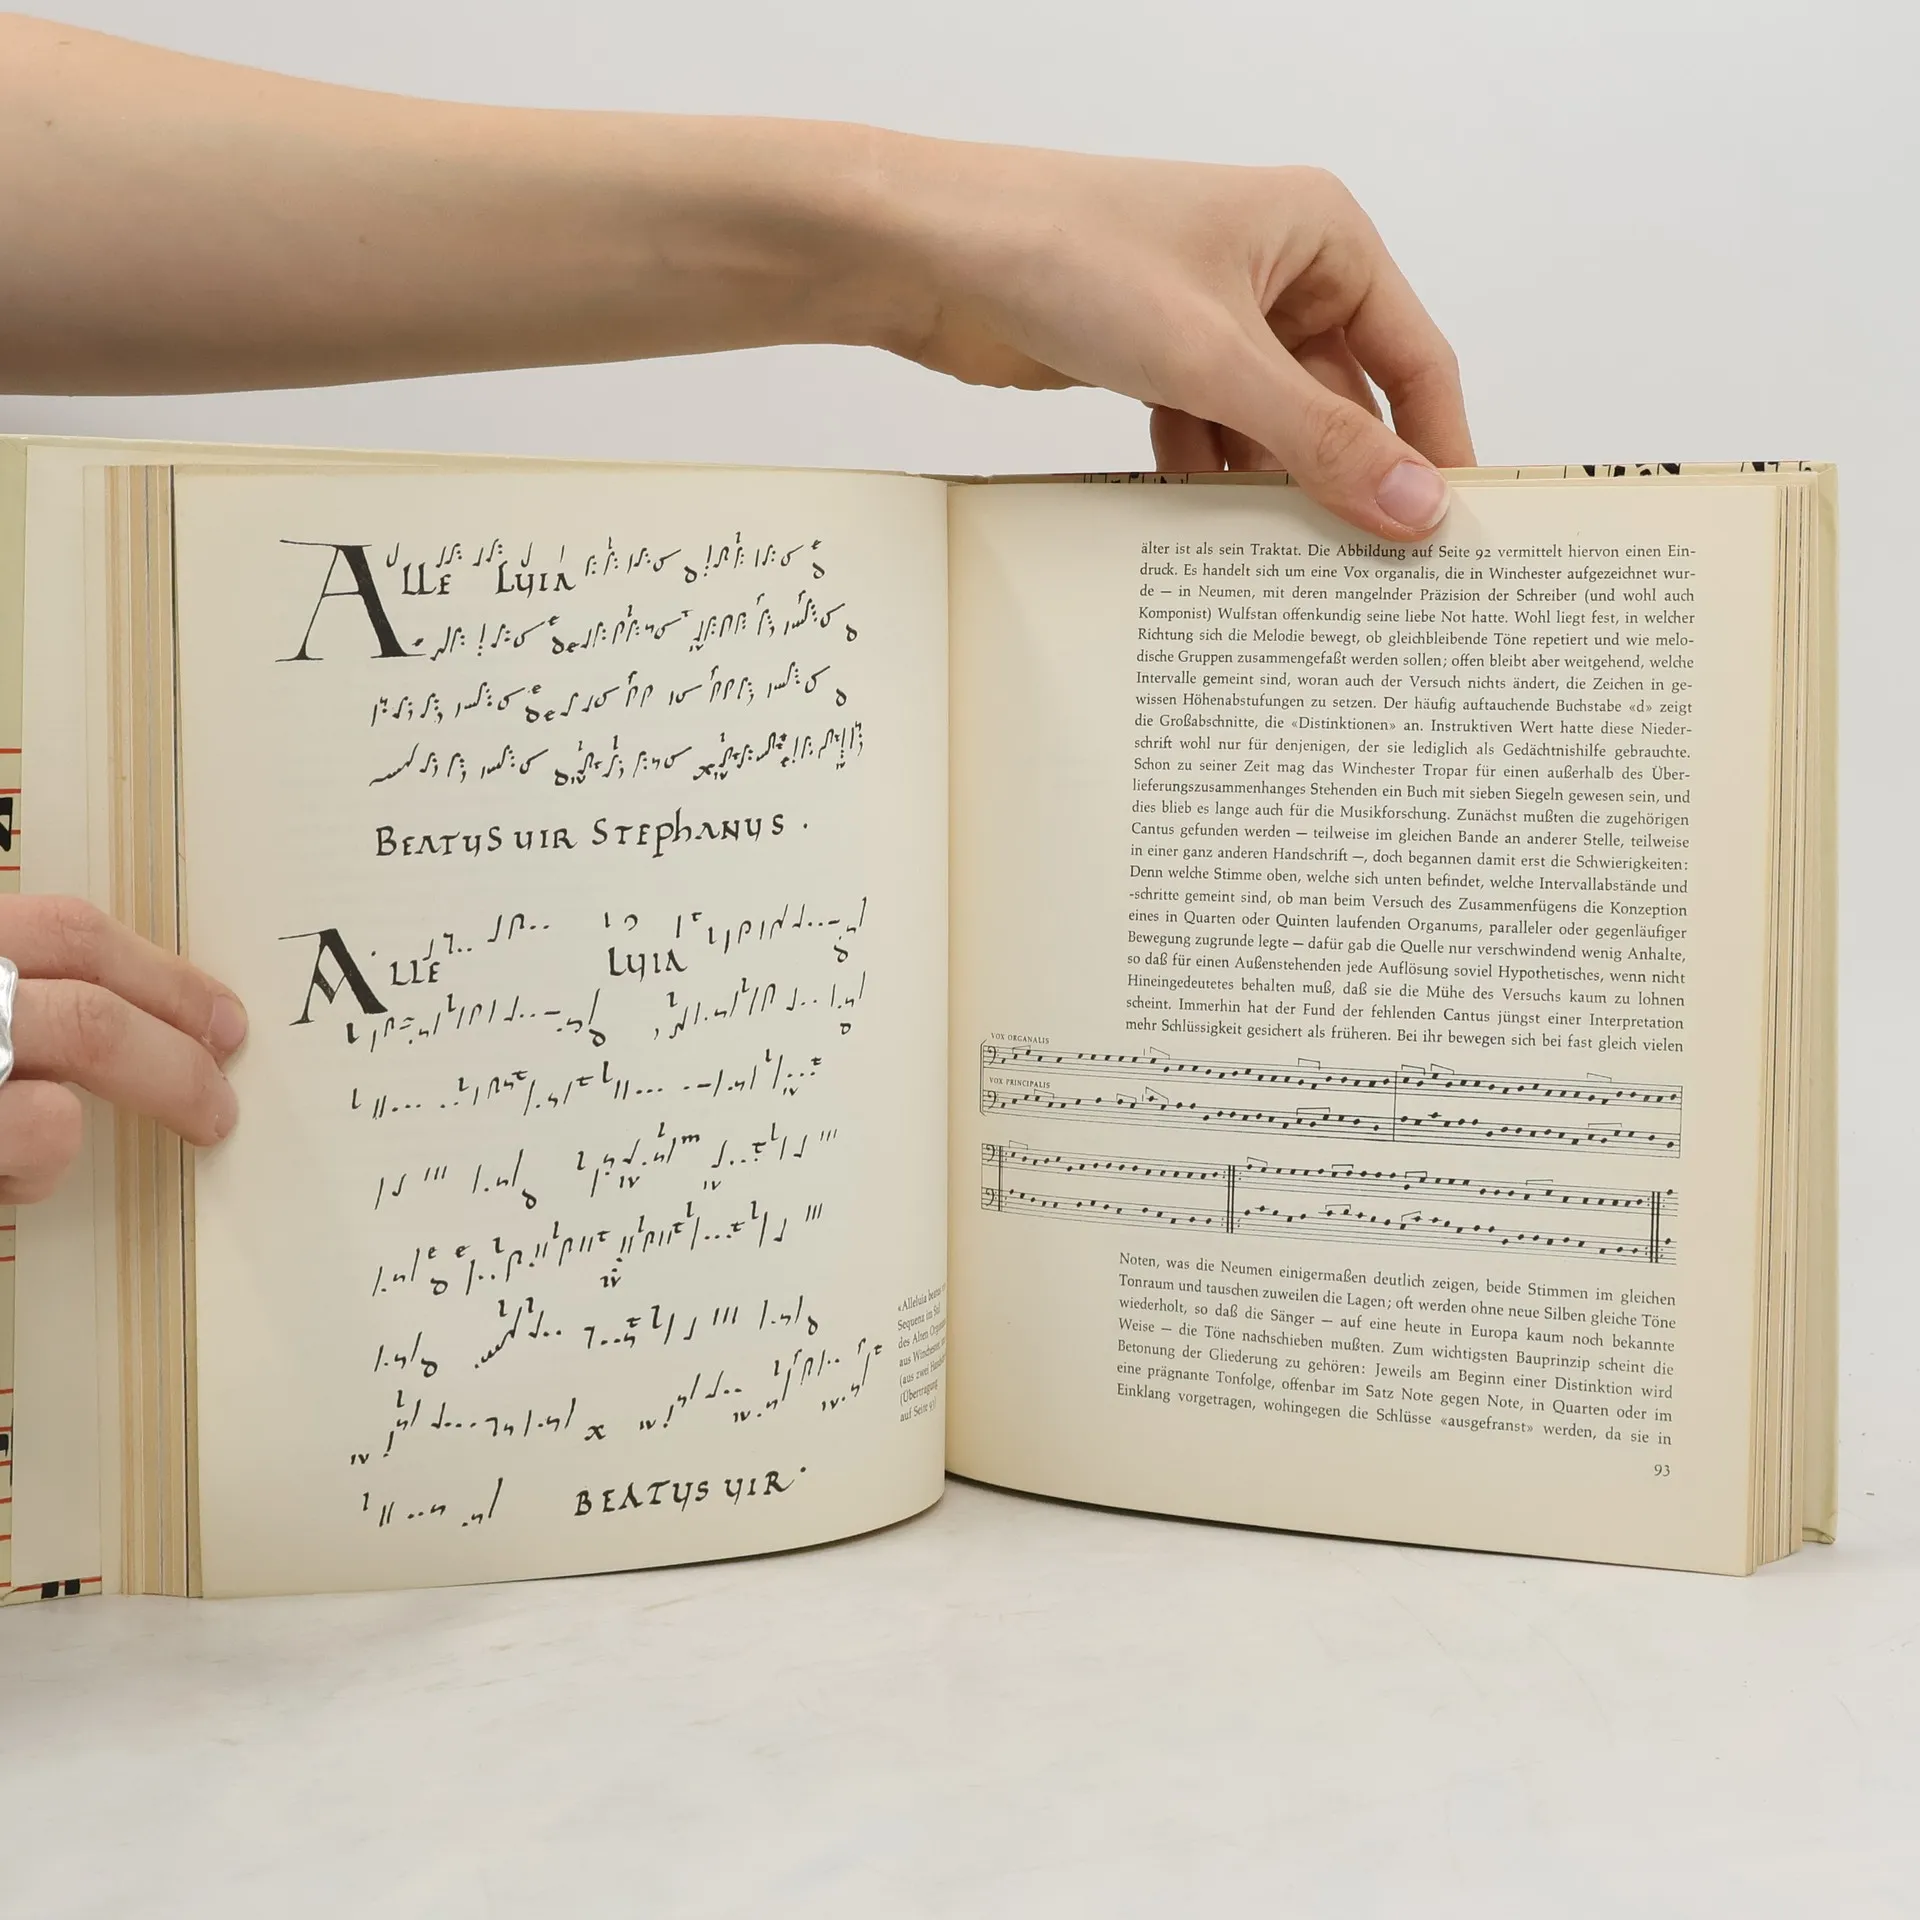 ALLE LUIA
BEATUS UIR STEPhANUS .
ALLE LUIA
BEATUS UIR .
«Alleluia beatus
Sequenz im Stil
des Alten Organum
aus Winchester
(aus zwei
(Übertragung
auf Seite 93)
älter ist als sein Traktat. Die Abbildung auf Seite 92 vermittelt hiervon einen Ein-
druck. Es handelt sich um eine Vox organalis, die in Winchester aufgezeichnet wur-
de — in Neumen, mit deren mangelnder Präzision der Schreiber (und wohl auch
Komponist) Wulfstan offenkundig seine liebe Not hatte. Wohl liegt fest, in welcher
Richtung sich die Melodie bewegt, ob gleichbleibende Töne repetiert und wie melo-
dische Gruppen zusammengefaßt werden sollen; offen bleibt aber weitgehend, welche
Intervalle gemeint sind, woran auch der Versuch nichts ändert, die Zeichen in ge-
wissen Höhenabstufungen zu setzen. Der häufig auftauchende Buchstabe «d» zeigt
die Großabschnitte, die «Distinktionen» an. Instruktiven Wert hatte diese Nieder-
schrift wohl nur für denjenigen, der sie lediglich als Gedächtnishilfe gebrauchte.
Schon zu seiner Zeit mag das Winchester Tropar für einen außerhalb des Über-
lieferungszusammenhanges Stehenden ein Buch mit sieben Siegeln gewesen sein, und
dies blieb es lange auch für die Musikforschung. Zunächst mußten die zugehörigen
Cantus gefunden werden — teilweise im gleichen Bande an anderer Stelle, teilweise
in einer ganz anderen Handschrift —, doch begannen damit erst die Schwierigkeiten:
Denn welche Stimme oben, welche sich unten befindet, welche Intervallabstände und
-schritte gemeint sind, ob man beim Versuch des Zusammenfügens die Konzeption
eines in Quarten oder Quinten laufenden Organums, paralleler oder gegenläufiger
Bewegung zugrunde legte — dafür gab die Quelle nur verschwindend wenig Anhalte,
so daß für einen Außenstehenden jede Auflösung soviel Hypothetisches, wenn nicht
Hineingedeutetes behalten muß, daß sie die Mühe des Versuchs kaum zu lohnen
scheint. Immerhin hat der Fund der fehlenden Cantus jüngst einer Interpretation
mehr Schlüssigkeit gesichert als früheren. Bei ihr bewegen sich bei fast gleich vielen
VOX ORGANALIS
VOX PRINCIPALIS
Noten, was die Neumen einigermaßen deutlich zeigen, beide Stimmen im gleichen
Tonraum und tauschen zuweilen die Lagen; oft werden ohne neue Silben gleiche Töne
wiederholt, so daß die Sänger — auf eine heute in Europa kaum noch bekannte
Weise — die Töne nachschieben mußten. Zum wichtigsten Bauprinzip scheint die
Betonung der Gliederung zu gehören: Jeweils am Beginn einer Distinktion wird
eine prägnante Tonfolge, offenbar im Satz Note gegen Note, in Quarten oder im
Einklang vorgetragen, wohingegen die Schlüsse «ausgefranst» werden, da sie in
93